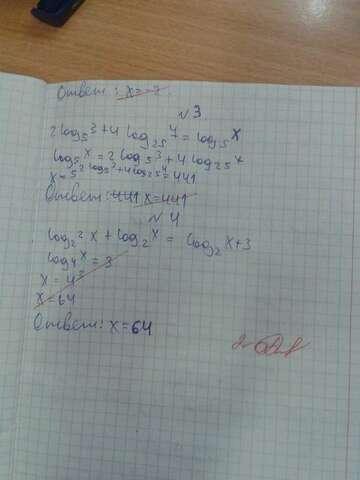 Ответ: x=-7.
№3.
2log₅3+4 log₂₅7=log₅x
log₅x=2 log₅3+4 log₂₅7
x=5^2 log₅3+4log₂₅7=441
Ответ: 441 x=441
№4
log₂²x+log₂x=log₂x+3
log₄x=3
x=4³
x=64
Ответ: x=64